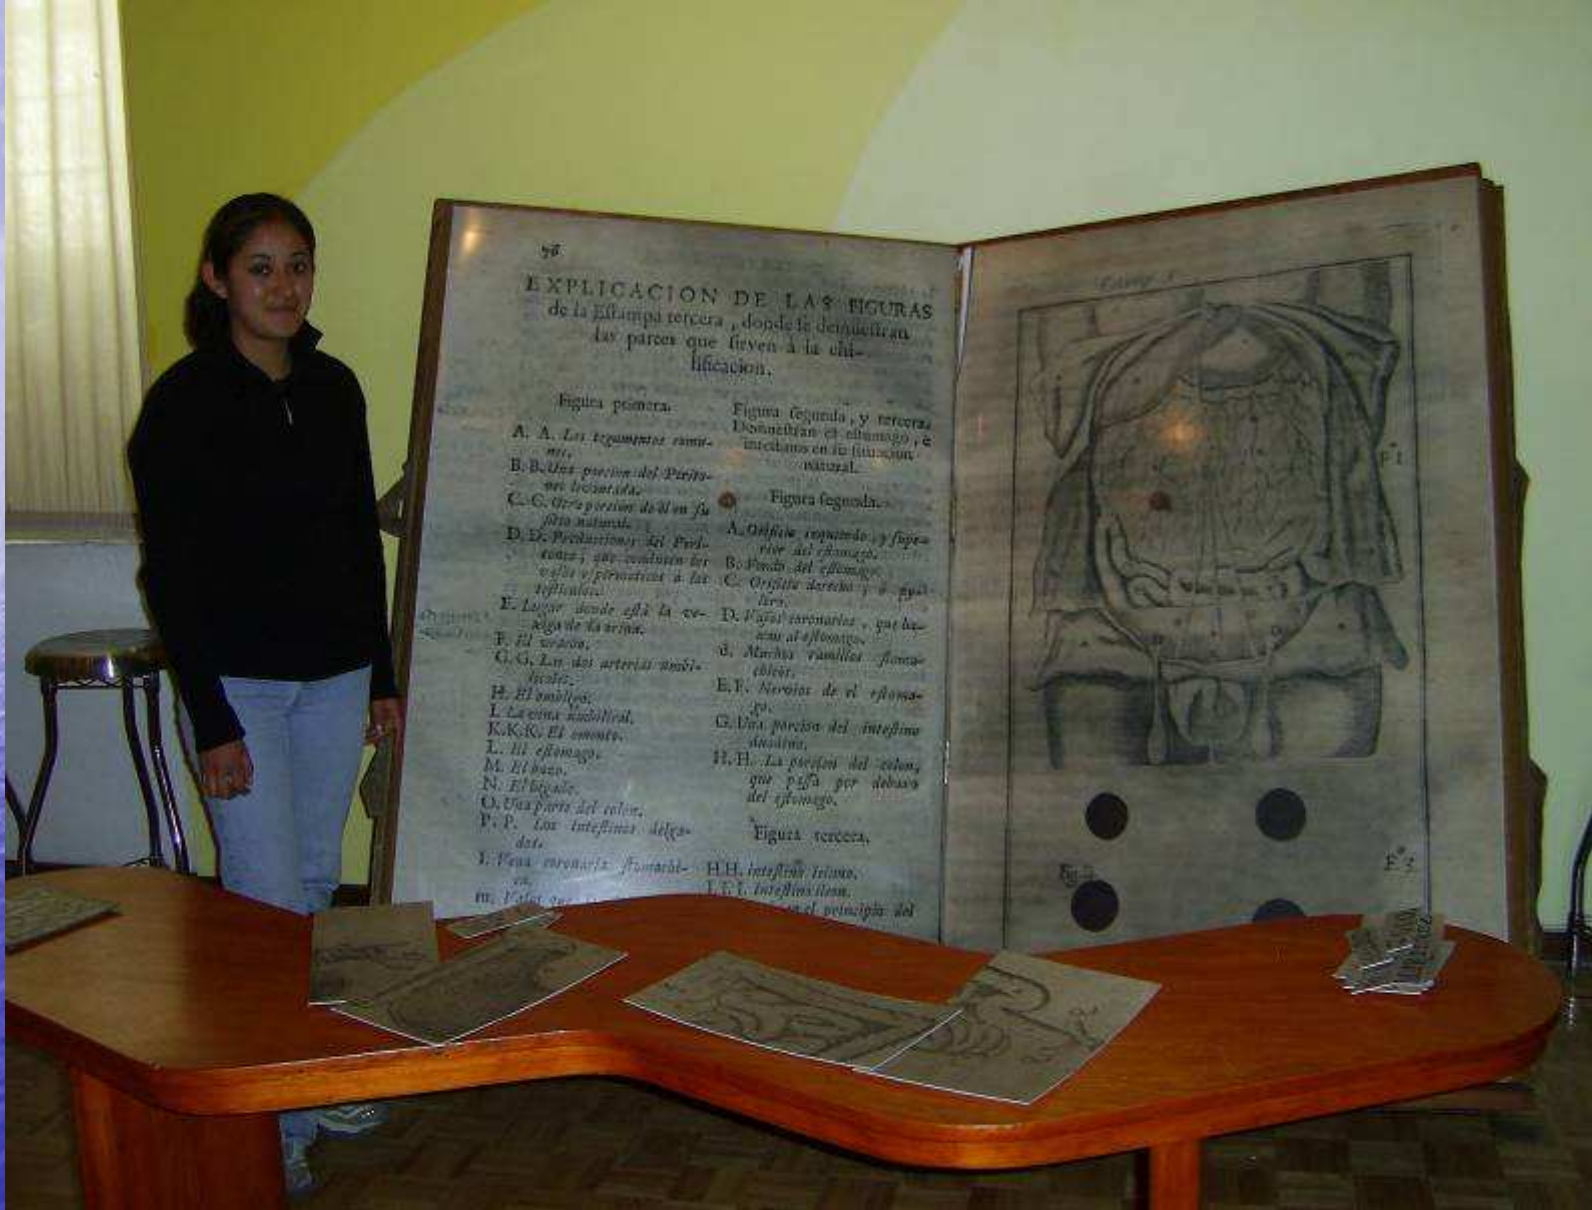 EXPLICACION DE LAS FIGURAS
de la Eſtampa tercera, donde ſe demueſtran
las partes que ſirven à la chi-
lificacion.
Figura primera.
A. A. Los tegumentos comu-
nes.
B. B. Una porcion del Perito-
neo levantada.
C. C. Otra porcion de él en ſu
ſitio natural.
D. D. Producciones del Peri-
toneo, que conducen los
vaſos eſpermaticos à los
teſticulos.
E. Lugar donde eſtà la ve-
xiga de la orina.
F. El uraco.
G. G. Las dos arterias umbi-
licales.
H. El ombligo.
I. La vena umbilical.
K. K. K. El omento.
L. El eſtomago.
M. El bazo.
N. El higado.
O. Una parte del colon.
P. P. Los inteſtinos delga-
dos.
I. Vena coronaria ſtomachi-
ca.
m. Vaſos que
Figura ſegunda, y tercera.
Demueſtran el eſtomago, è
inteſtinos en ſu ſituacion
natural.
Figura ſegunda.
A. Orificio izquierdo, y ſupe-
rior del eſtomago.
B. Fondo del eſtomago.
C. Orificio derecho, ò pylo-
D. Vaſos coronarios, que ba-
xan al eſtomago.
Muchos ramillos ſtoma-
chicos.
Nervios de el eſtoma-
go.
G. Una porcion del inteſtino
duodeno.
H. H. La porcion del colon,
que paſſa por debaxo
del eſtomago.
Figura tercera.
H H. Inteſtino
I. I. I. Inteſtino ileon.
en el principio del